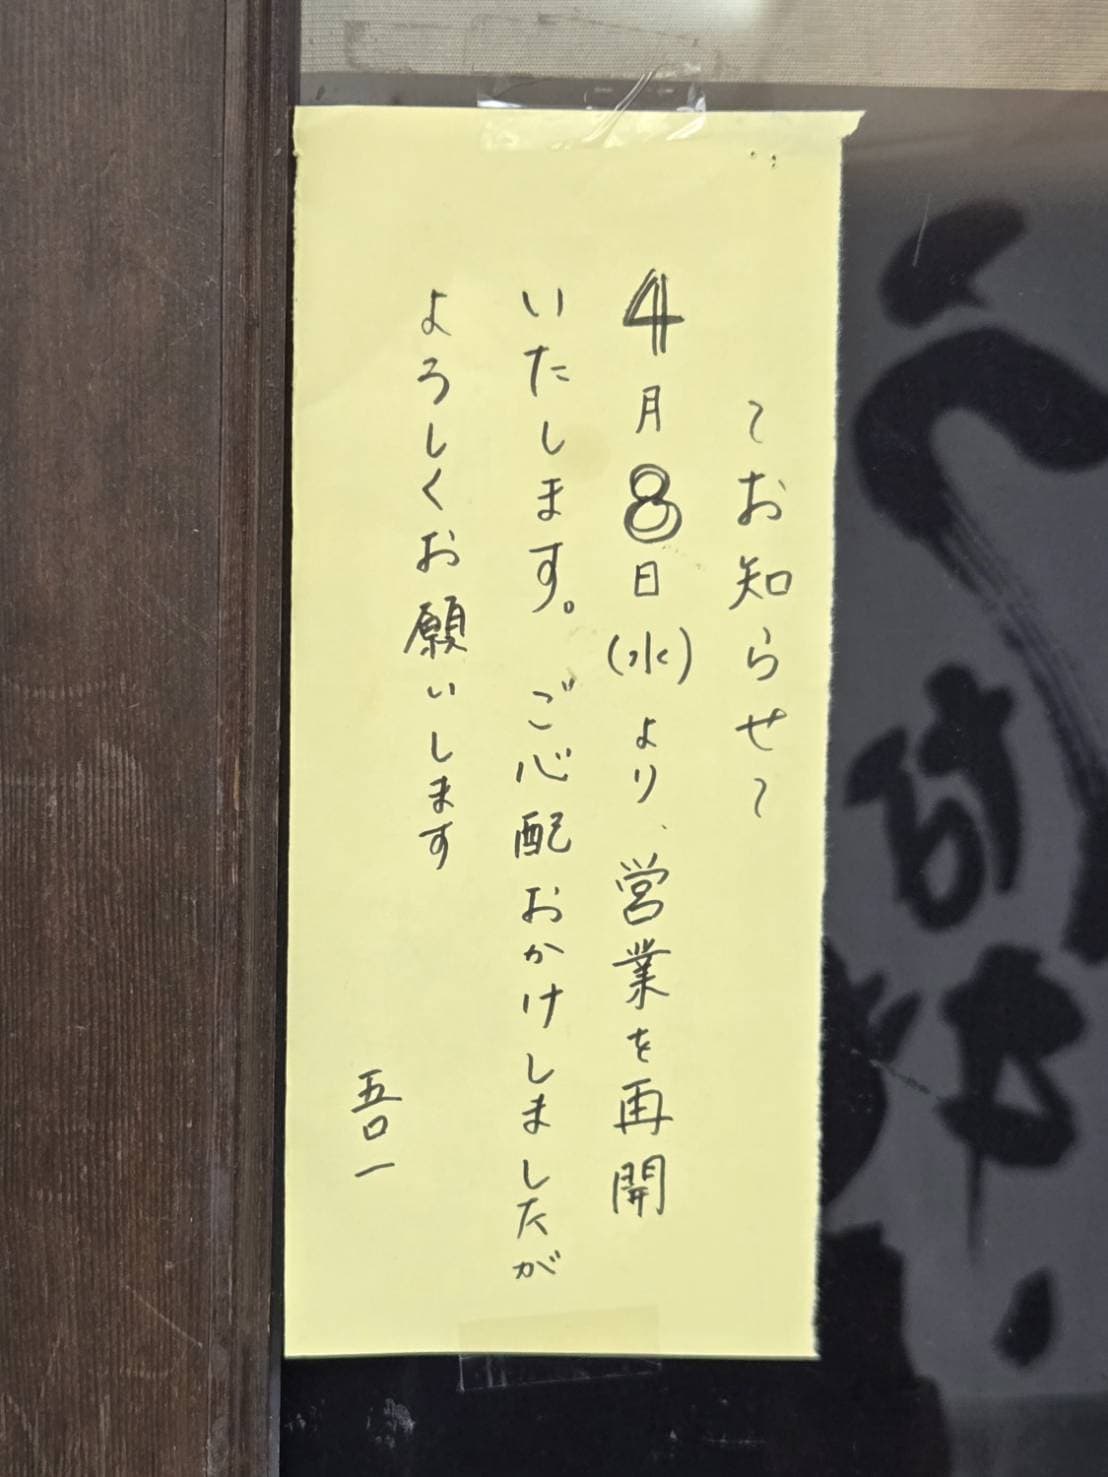 ～お知らせ～
4月8日(水)より、営業を再開
いたします。ご心配おかけしましたが
よろしくお願いします
五〇一